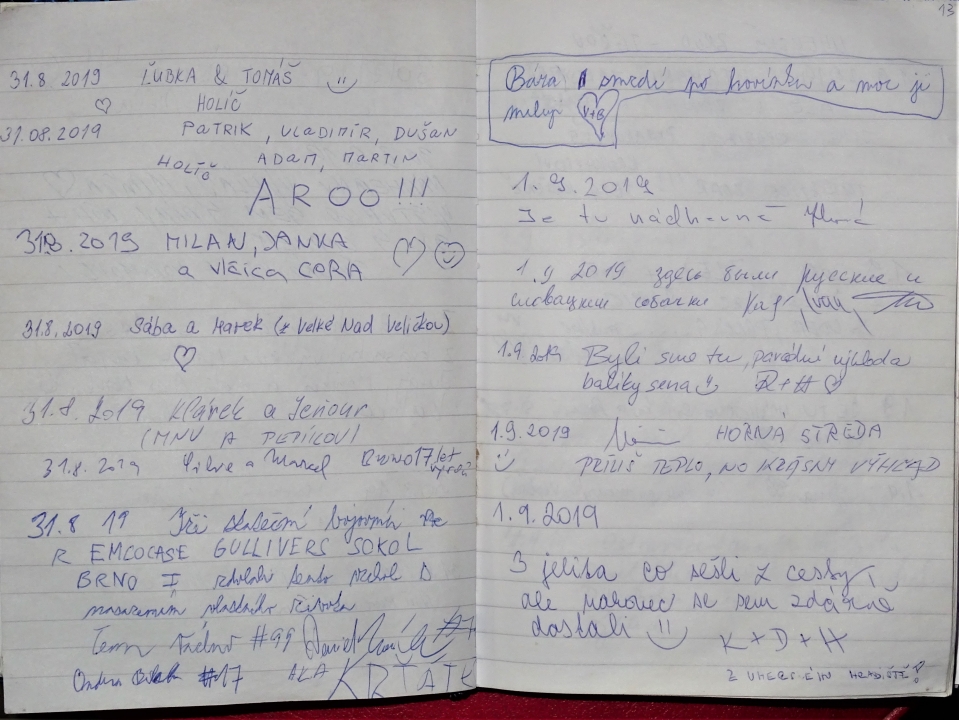 31.8 2019 ĽUBKA & TOMÁŠ
HOLÍČ
31.08.2019 PATRIK, VLADIMÍR, DUŠAN
HOLÍČ ADAM, MARTIN
AROO!!!
31.8.2019 MILAN, JANKA
a vlčica CORA
31.8.2019 Sába a Marek (z Velké Nad Veličkou)
31.8.2019 Klárek a Jenour
(MNV A PETÍKOV)
31.8.2019 a Marcel BRNO 17 let
výročí
31.8 19 Tři stateční bojovníci
R EMCOCASE GULLIVERS SOKOL
BRNO I zdolali tento vrchol s
nasazením vlastního života
#99 David
Ondra #17 AKA KRTATK
13
Bára smrdí po hovínku a moc ji
miluji V+B
1.9.2019
Je tu nádherně
1.9 2019 здесь были русские и
словацкие собачки Ivan
1.9 2019 Byli sme tu, parádní výhloda
balíky sena R+H
1.9.2019 HORNÁ STREDA
PRÍLIŠ TEPLO, NO KRÁSNY VÝHĽAD
1.9.2019
3 jelita co sešli z cesty,
ale nakonec se sem zdárně
dostali K+D+H
Z UHERSKÉHO HRADIŠTĚ!